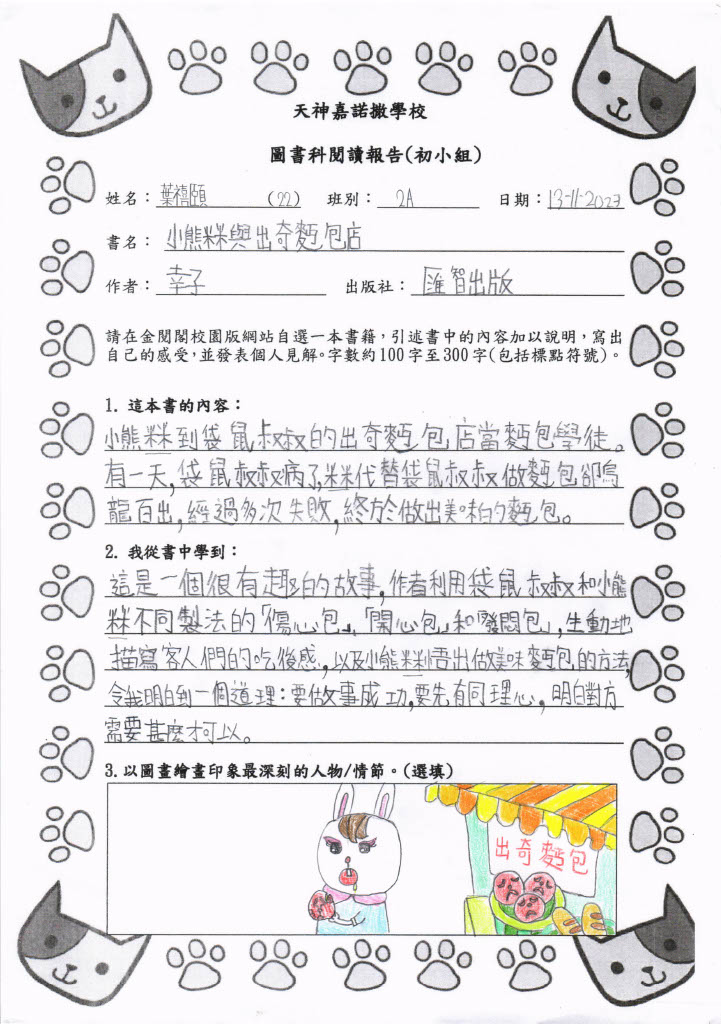 天神嘉諾撒學校
圖書科閱讀報告(初小組)
姓名：葉禧頤 (22) 班別：2A 日期：13-11-2023
書名：小熊粦粦與出奇麵包店
作者：幸子 出版社：匯智出版
請在金閱閣校園版網站自選一本書籍，引述書中的內容加以說明，寫出
自己的感受，並發表個人見解。字數約100字至300字(包括標點符號)。
1. 這本書的內容：
小熊 到袋鼠叔叔的出奇麵包店當麵包學徒。
有一天，袋鼠叔叔病了， 代替袋鼠叔叔做麵包卻烏
龍百出，經過多次失敗，終於做出美味的麵包。
2. 我從書中學到：
這是一個很有趣的故事，作者利用袋鼠叔叔和小熊
不同製法的「傷心包」、「開心包」和「發悶包」，生動地
描寫客人們的吃後感，以及小熊 悟出做美味麵包的方法，
令我明白到一個道理：要做事成功，要先有同理心，明白對方
需要甚麼才可以。
3. 以圖畫繪畫印象最深刻的人物/情節。(選填)
出奇麵包